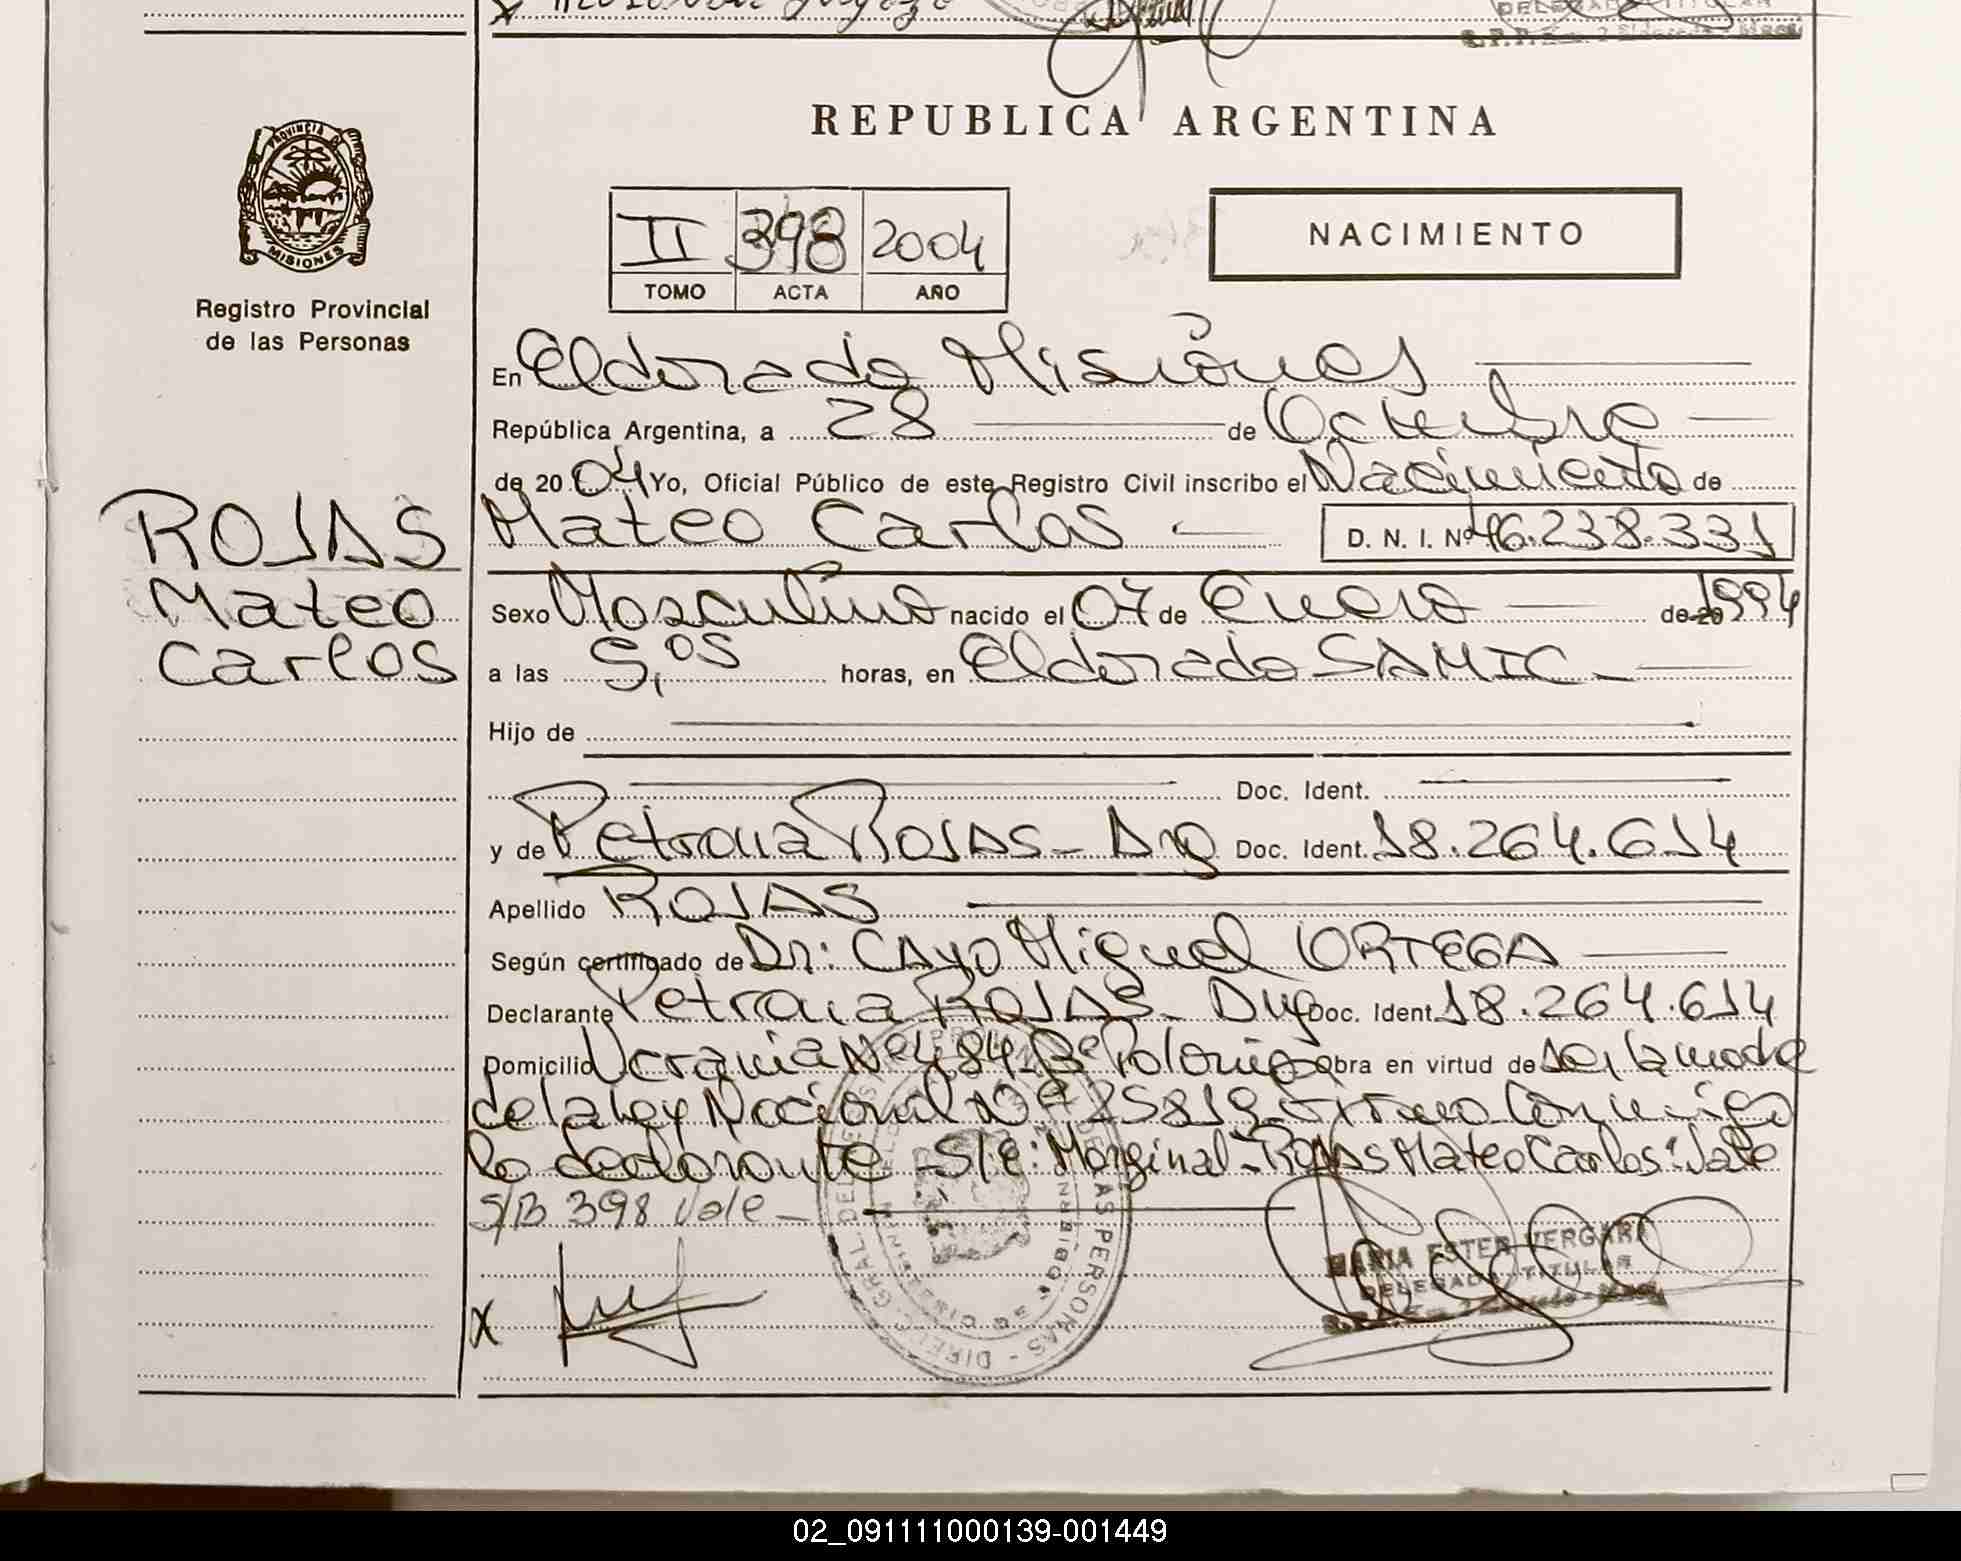 PROVINCIA DE
MISIONES
Registro Provincial
de las Personas
ROJAS
Mateo
Carlos
DELEGADO TITULAR
REPUBLICA ARGENTINA
II 398 2004
TOMO ACTA AÑO
NACIMIENTO
En Eldorado Misiones
República Argentina, a 28 de Octubre
de 2004 Yo, Oficial Público de este Registro Civil inscribo el Nacimiento de
Mateo Carlos D. N. I. Nº 46.238.331
Sexo Masculino nacido el 07 de Enero de 20 1994
a las 5,05 horas, en Eldorado SAMIC
Hijo de
Doc. Ident.
y de Petrona Rojas - Arg Doc. Ident. 18.264.614
Apellido ROJAS
Según certificado de Dr: CAYO Miguel ORTEGA
Declarante Petrona ROJAS - Doc. Ident. 18.264.614
Domicilio Ucrania Nº 484 Bº Polonia Obra en virtud de ser la madre
de la ley Nacional Nº 25819 firmando conmigo
la declarante - S/e: Marginal - Rojas Mateo Carlos: Vale
S/B 398 Vale -
X
MARIA ESTER VERGARA
DELEGADA TITULAR
02_091111000139-001449